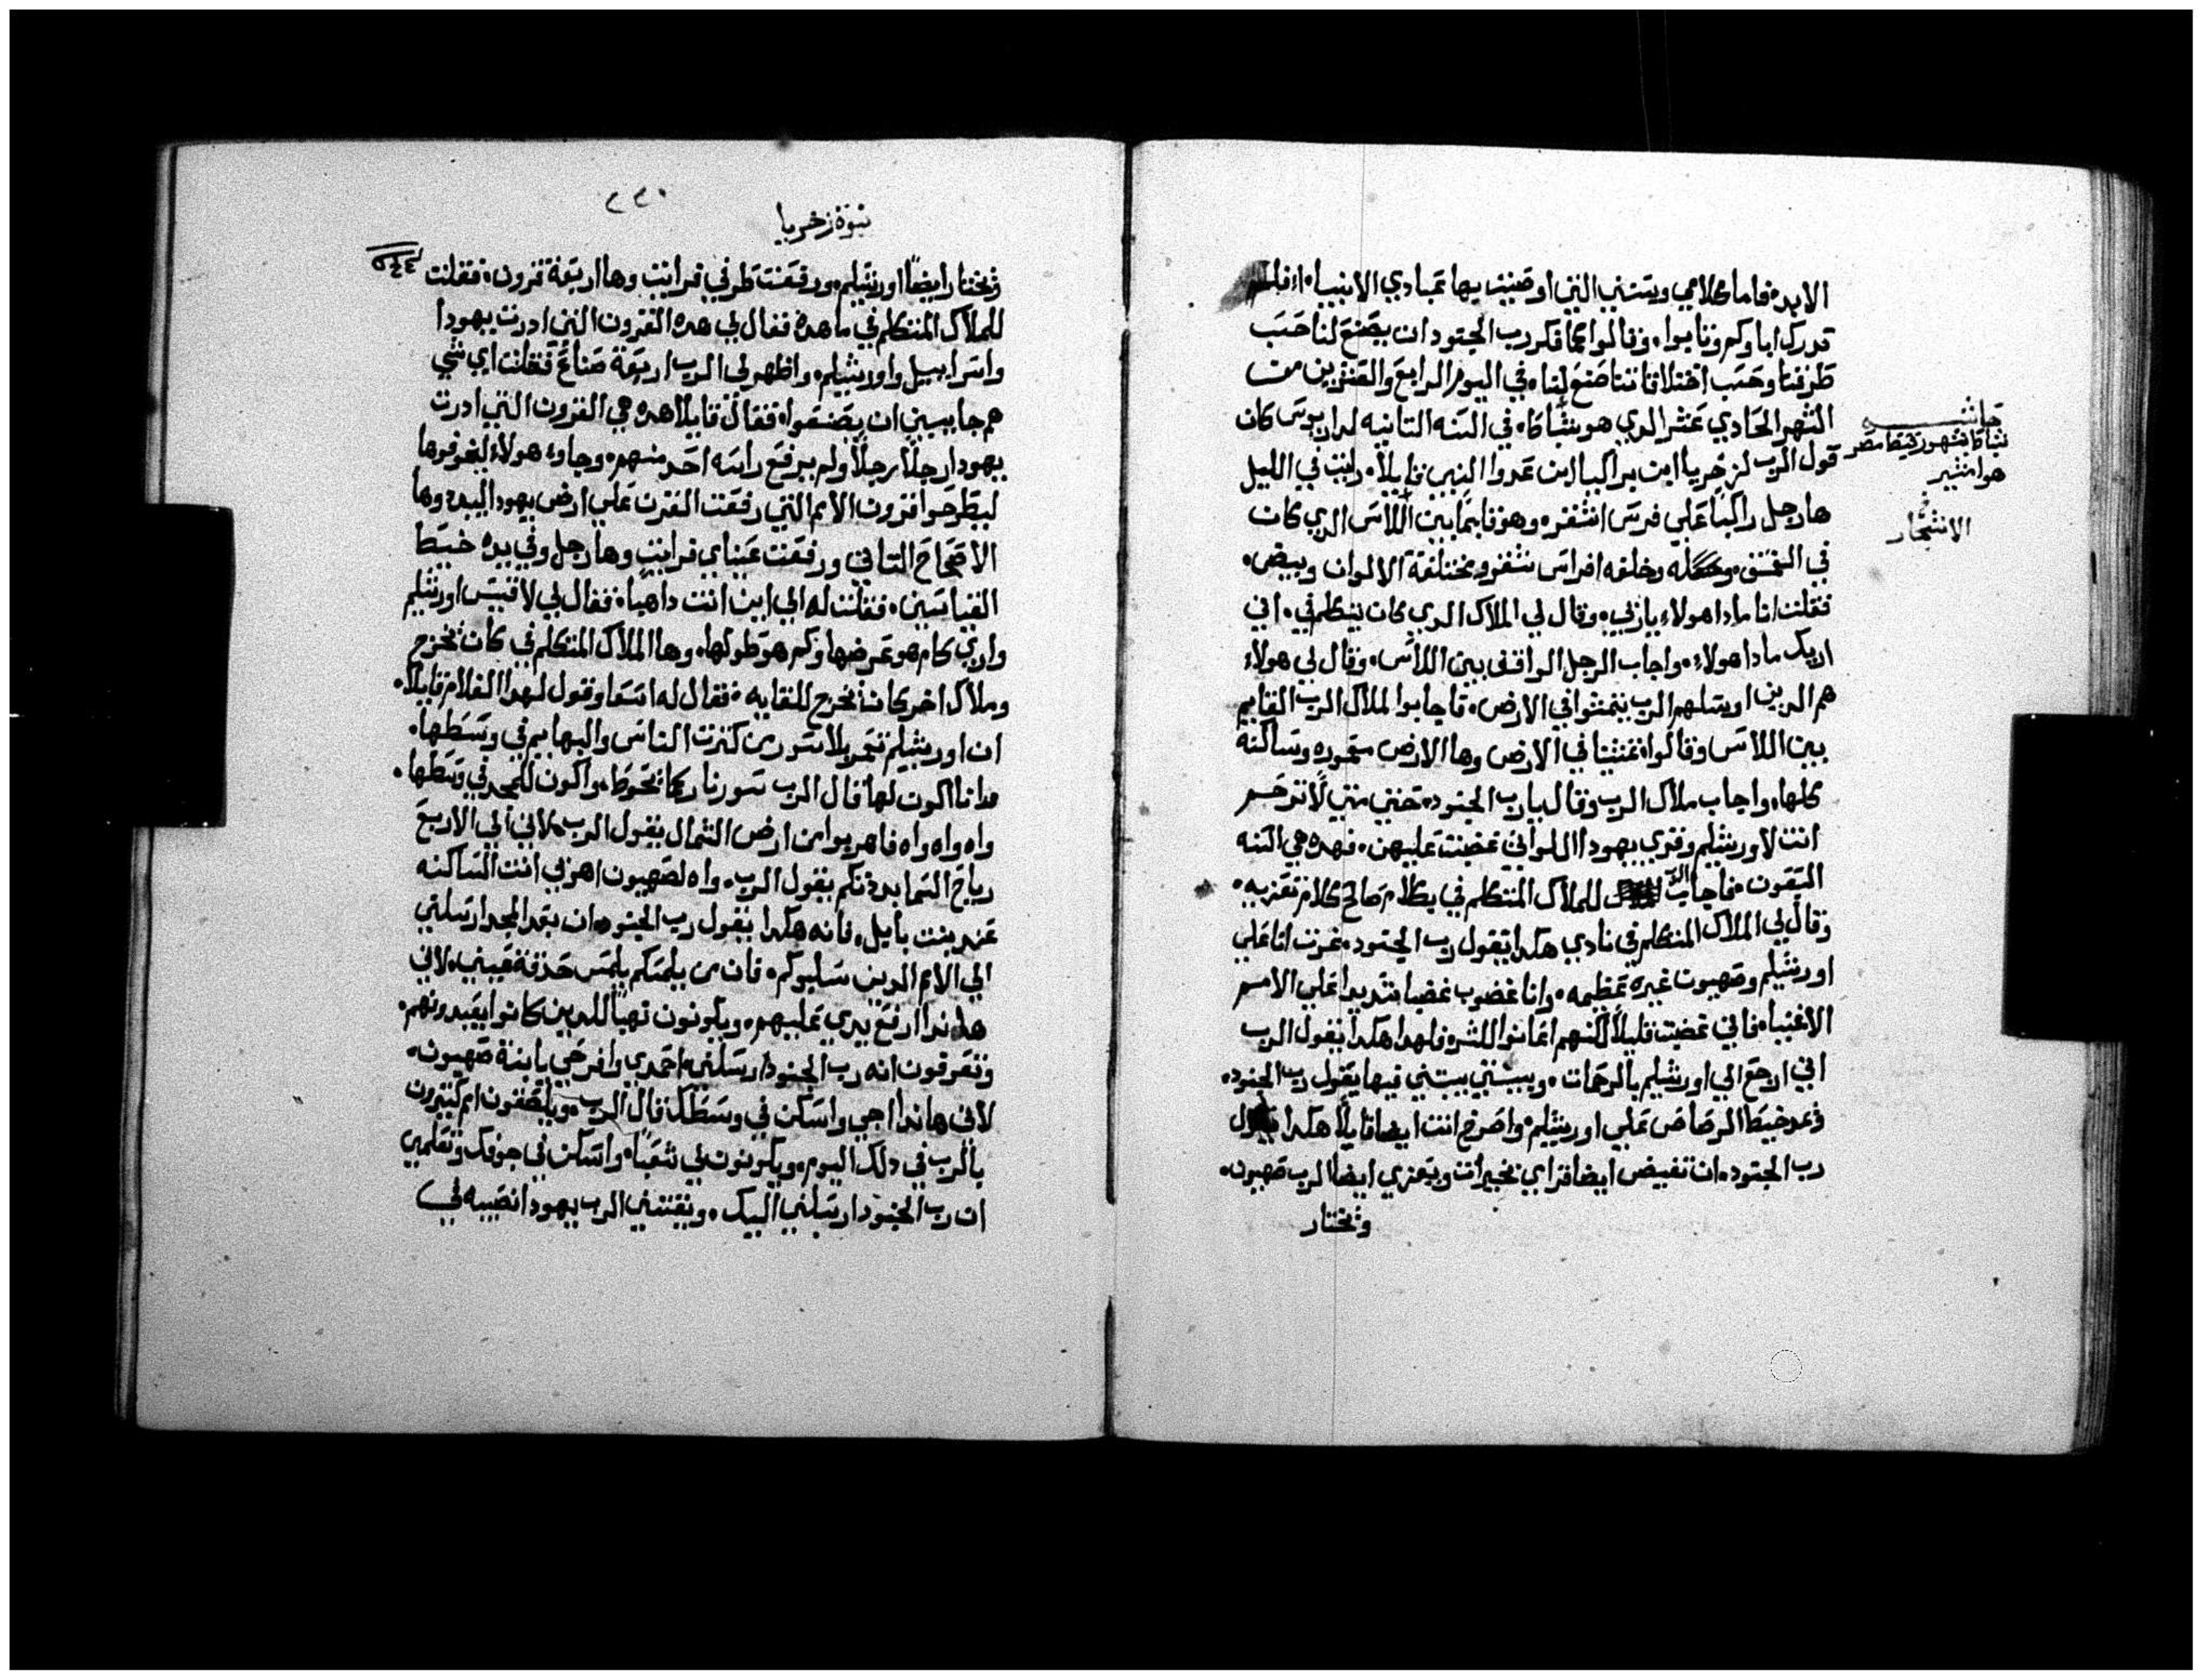 الابد؛ فاما كلامي وسنني التي اوصيت بها عبادي الانبيا؛ افلم
تدرك اباوكم وتابوا، وقالوا كما فكر رب الجنود ان يصنع لنا حسب
طرقنا وحسب اختلاقاتنا صنع لنا، في اليوم الرابع والعشرين من
الشهر الحادي عشر الدي هو شباط، في السنه التانيه لداريوس كان
قول الرب لزخريا ابن براكيا ابن عدوا النبي قايلاً، رايت في الليل
ها رجل راكباً علي فرس اشقر، وهو قايماً بين اللاس الدي كان
في العمق، وخلفه افراس شقر ومختلفة الالوان وبيض.
فقلت انا مادا هولاء ياربي، وقال لي الملاك الدي كان يتكلم في، اني
اريك مادا هولاء، واجاب الرجل الواقف بين اللاس، وقال لي هولاء
هم الدين ارسلهم الرب يتمشوا في الارض، فاجابوا لملاك الرب القايم
بين اللاس وقالوا، تمشينا في الارض وها الارض معموره وساكنه
كلها، واجاب ملاك الرب وقال يارب الجنود، حتي متي لاترحم
انت لاورشليم وقري يهودا اللواتي غضبت عليهن، فهده هي السنه
السبعون، فاجاب الرب للملاك المتكلم في بكلام صالح كلام تعزيه،
وقال لي الملاك المتكلم في نادي هكدا يقول رب الجنود، غرت انا علي
اورشليم وصهيون غيره عظيمه، وانا غضوب غضبا شديدا علي الامم
الاغنيا، فاني غضبت قليلاً لكنهم اعانوا للشر، فلهدا هكدا يقول الرب
اني ارجع الي اورشليم بالرحمات، وبيتي يبتني فيها يقول رب الجنود،
ويمد خيط الرصاص علي اورشليم، واصرخ انت ايضا قايلاً هكدا يقول
رب الجنود، ان تفيض ايضا قراي بخيرات ويعزي ايضا الرب صهيون،
ويختار
حاشيه
شباط بشهور قبط مصر
هو امشير
الاشجار
٢٢٠
نبوة زخريا
ويختار ايضاً اورشليم، ورفعت طرفي فرايت وها اربعة قرون، فقلت
للملاك المتكلم في ما هده فقال لي هده القرون التي ادرت يهودا
واسراييل واورشليم، واظهر لي الرب اربعة صناع، فقلت اي شي
هم جايين ان يصنعوا، فقال قايلا هده هي القرون التي ادرت
يهودا رجلاً رجلاً ولم يرفع راسه احد منهم، وجاوء هولاء ليخوفوها
ليطرحوا قرون الامم التي رفعت القرن علي ارض يهودا ليبددوها
الاصحاح التاني ورفعت عيناي فرايت وها رجل وفي يده خيط
القياسين، فقلت له الي اين انت داهبا، فقال لي لاقيس اورشليم
واري كام هو عرضها وكم هو طولها، وها الملاك المتكلم في كان يخرج
وملاك اخر كان يخرج للقايه، فقال له اسعا وقول لهدا الغلام قايلاً.
ان اورشليم تعمر بلا سور من كترت الناس والبهايم في وسطها.
وانا اكون لها قال الرب سور نار كما تحوط، واكون للمجد في وسطها.
واه واه واه فاهربوا من ارض الشمال يقول الرب، لاني الي الاربع
رياح السما بددتكم يقول الرب، واه لصهيون اهربي انت الساكنه
عند بنت بابل، فانه هكدا يقول رب الجنود، ان بعد المجد ارسلني
الي الامم الدين سلبوكم، فان من يلمسكم يلمس حدقة عيني، لاني
هاندا ارفع يدي عليهم، ويكونون نهباً للدين كانوا يعبدونهم.
وتعرفون انه رب الجنود ارسلني، احمدي وافرحي يا ابنة صهيون،
لاني هاندا اجي واسكن في وسطك قال الرب، ويلتصقون امم كتيرون
بالرب في دلك اليوم، ويكونون لي شعباً، واسكن في جوفك وتعلمين
ان رب الجنود ارسلني اليك، ويقتني الرب يهودا نصيبه في